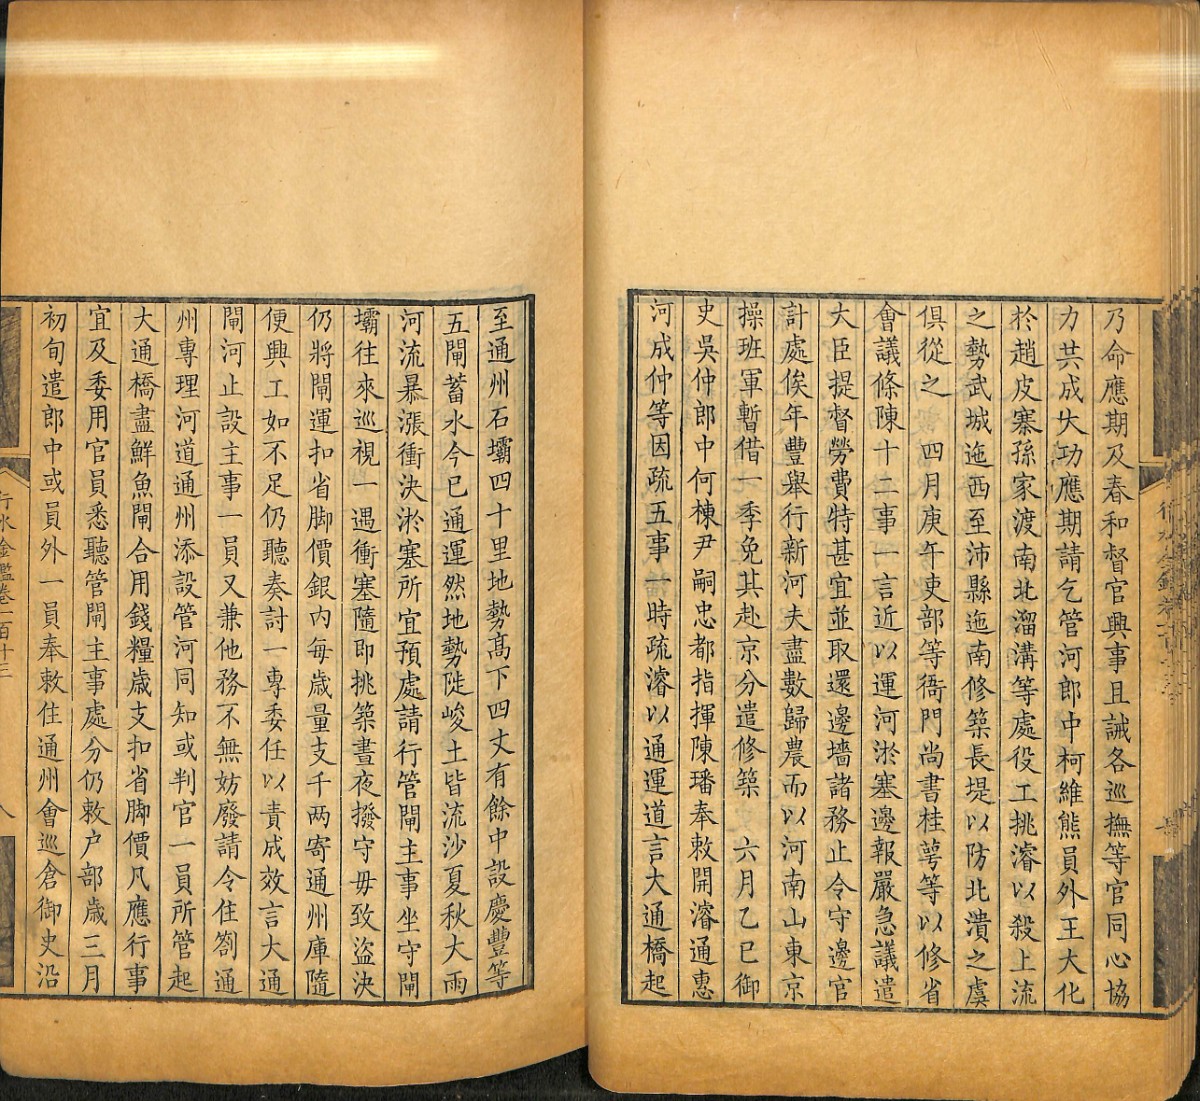 乃命應期及春和督官興事且誡各巡撫等官同心協
力共成大功應期請乞管河郎中柯維熊員外王大化
於趙皮寨孫家渡南北溜溝等處役工挑濬以殺上流
之勢武城迤西至沛縣迤南修築長堤以防北潰之虞
俱從之　四月庚午吏部等衙門尚書桂萼等以修省
會議條陳十二事一言近以運河淤塞邊報嚴急議遣
大臣提督勞費特甚宜並取還邊墻諸務止令守邊官
計處俟年豐舉行新河夫盡數歸農而以河南山東京
操班軍暫借一季免其赴京分遣修築　六月乙巳御
史吳仲郎中何棟尹嗣忠都指揮陳璠奉敕開濬通惠
河成仲等因疏五事一時疏濬以通運道言大通橋起
至通州石壩四十里地勢高下四丈有餘中設慶豐等
五閘蓄水今已通運然地勢陡峻土皆流沙夏秋大雨
河流暴漲衝決淤塞所宜預處請行管閘主事坐守閘
壩往來巡視一遇衝塞隨即挑築晝夜撥守毋致盜決
仍將閘運扣省脚價銀內每歲量支千两寄通州庫隨
便興工如不足仍聽奏討一專委任以責成效言大通
閘河止設主事一員又兼他務不無妨廢請令住劄通
州專理河道通州添設管河同知或判官一員所管起
大通橋盡鮮魚閘合用錢糧歲支扣省脚價凡應行事
宜及委用官員悉聽管閘主事處分仍敕户部歲三月
初旬遣郎中或員外一員奉敕住通州會巡倉御史沿
行水金鑑卷一百十三
八